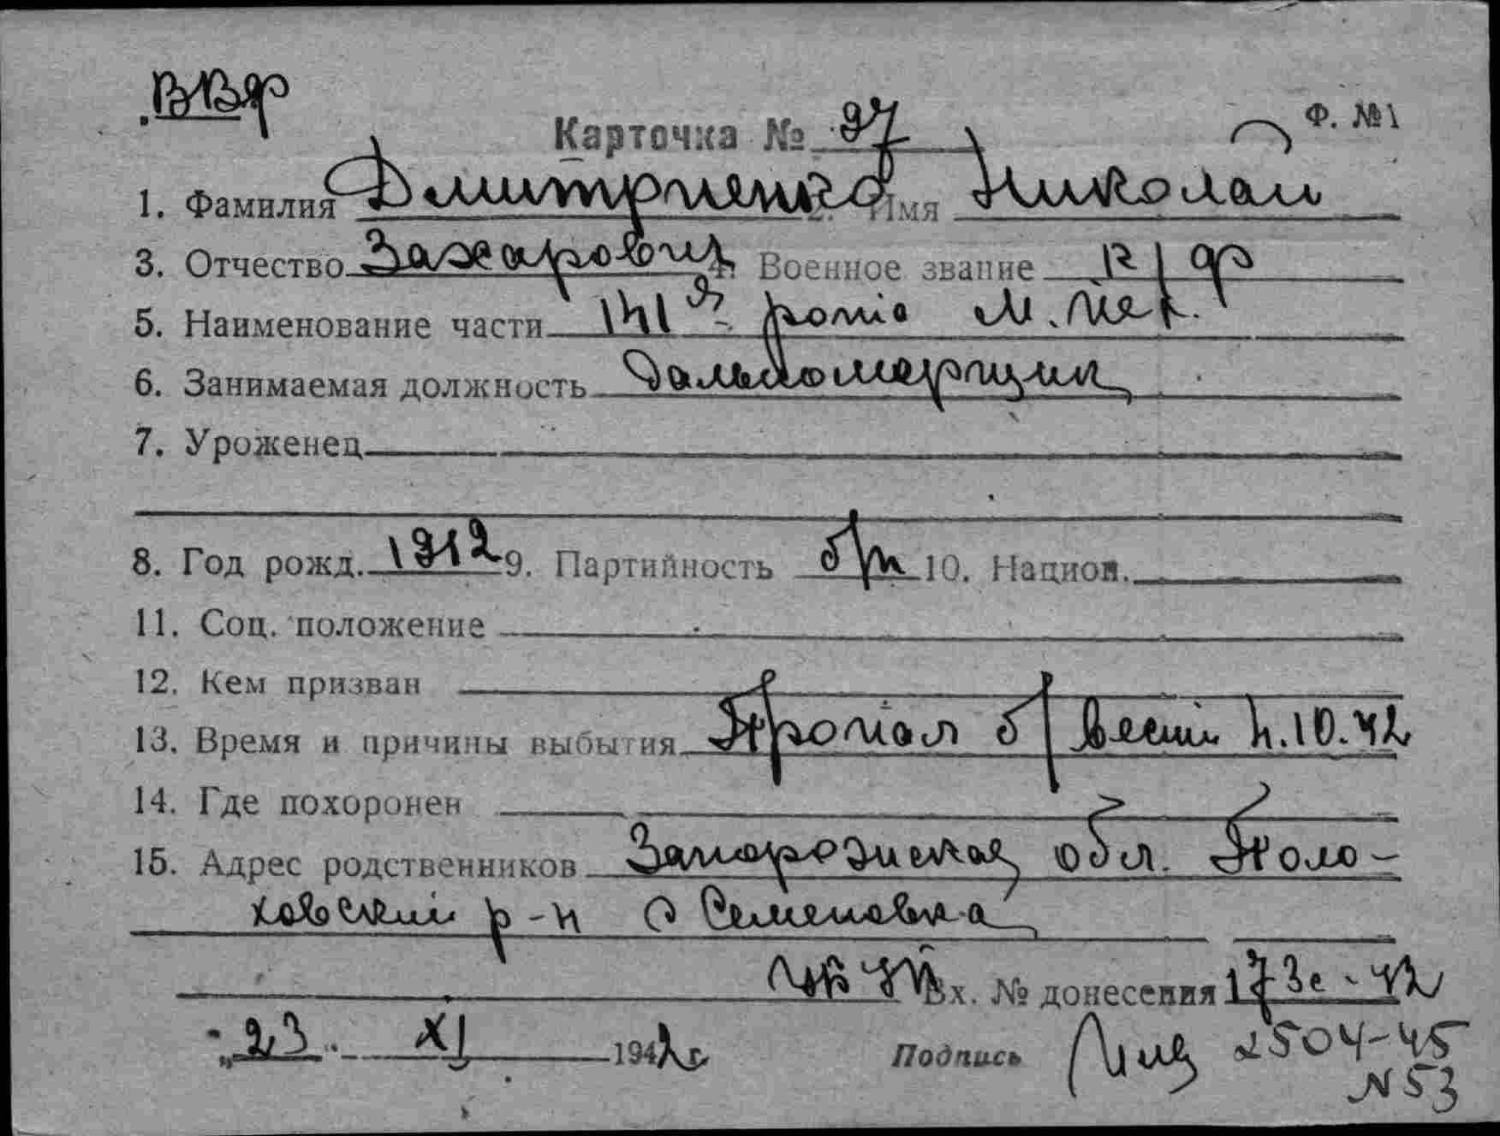 ВВФ
Карточка № 97 Ф. №1
1. Фамилия Дмитриенко 2. Имя Николай
3. Отчество Захарович 4. Военное звание к/ф
5. Наименование части 141я рота М. Пех.
6. Занимаемая должность Дальномерщик
7. Уроженец
8. Год рожд. 1912 9. Партийность б/п 10. Национ.
11. Соц. положение
12. Кем призван
13. Время и причины выбытия Пропал б/вести h.10.42
14. Где похоронен
15. Адрес родственников Запорожская обл. Поло-
ховский р-н с Семеновка
Вх. № донесения 173с-42
„23" XI 1942 г. Подпись 2504-45
N 53